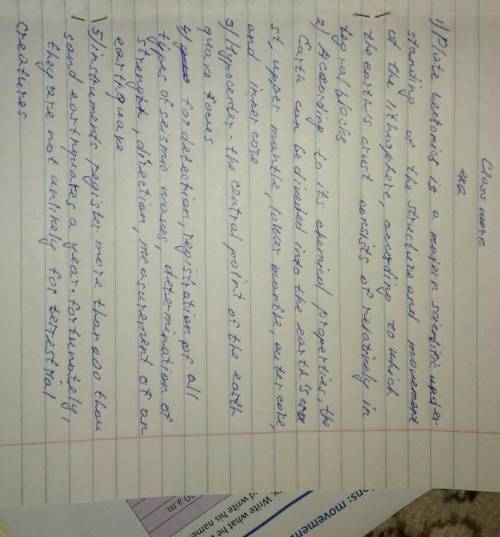 Class work
№2
1) Plate tectonics is a modern scientific under-
standing of the structure and movement
of the lithosphere, according to which
the earth's crust consists of relatively in
tegral blocks
2) According to its chemical properties, the
Earth can be divided into the earth's cru
st, upper mantle, lower mantle, outer core,
and inner core
3) Hypocenter - the central point of the earth
quake focus
4) for detection, registration of all
types of seismic waves, determination of
strength, direction, measurement of an
earthquake
5) instruments register more than 200 thou
sand earthquakes a year. fortunately,
they are not unlikely for terrestrial
creatures
ons: movemen
k. Write what he
d write his name
0 a.m.